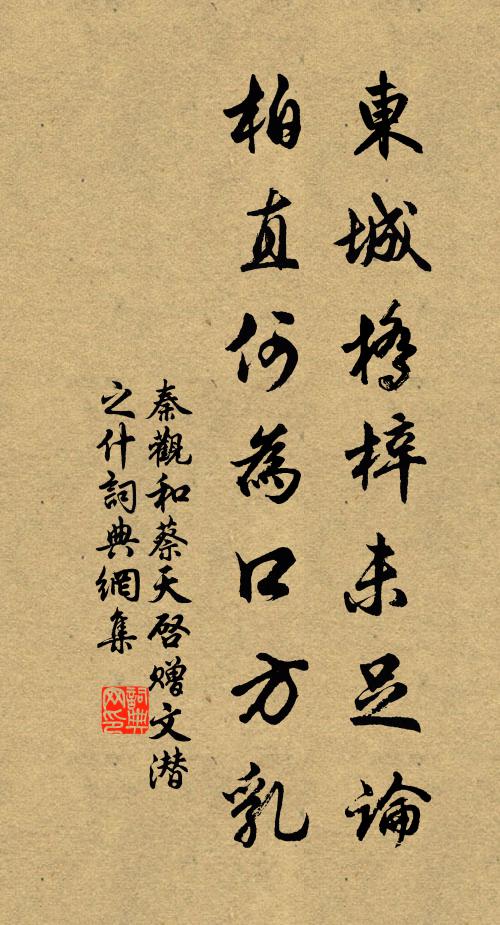 東城橋梓未足論
柏直何為口方乳
秦觀和蔡天啓贈文潜
之什詞典網集
詞典
网印